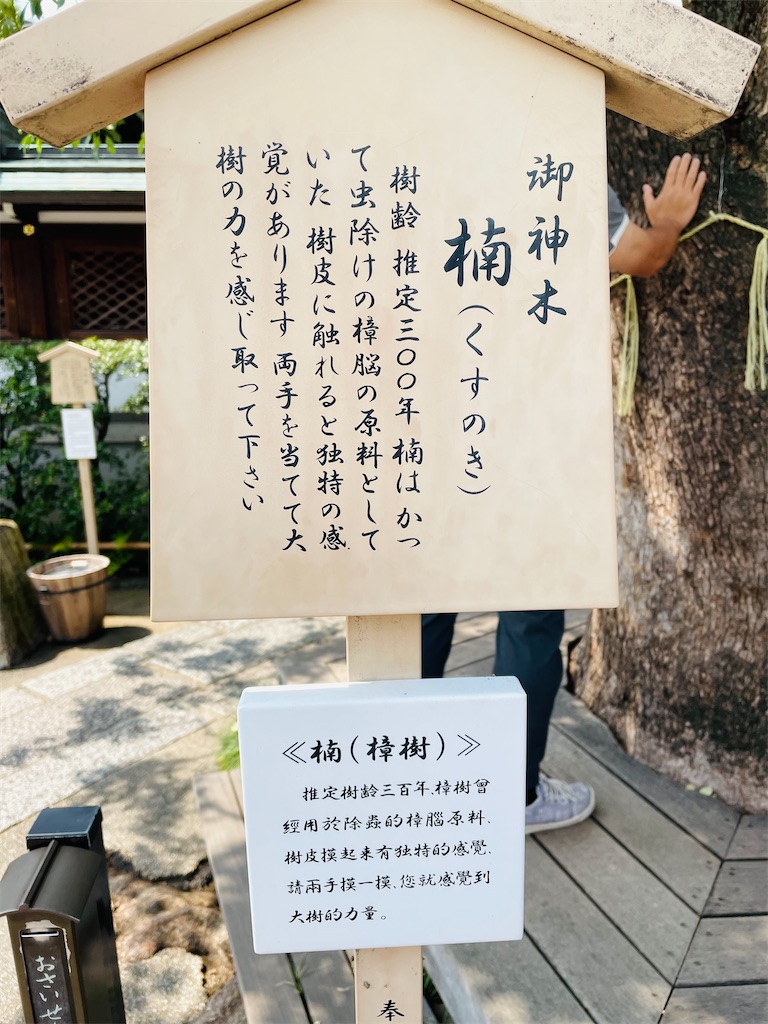 御神木
楠（くすのき）
樹齢 推定三〇〇年 楠はかつ
て虫除けの樟脳の原料として
いた 樹皮に触れると独特の感
覚があります 両手を当てて大
樹の力を感じ取って下さい
≪楠(樟樹)≫
推定樹齡三百年、樟樹曾
經用於除蟲的樟腦原料、
樹皮摸起来有独特的感覺、
請兩手摸一摸、您就感覺到
大樹的力量。
奉
おさいせ